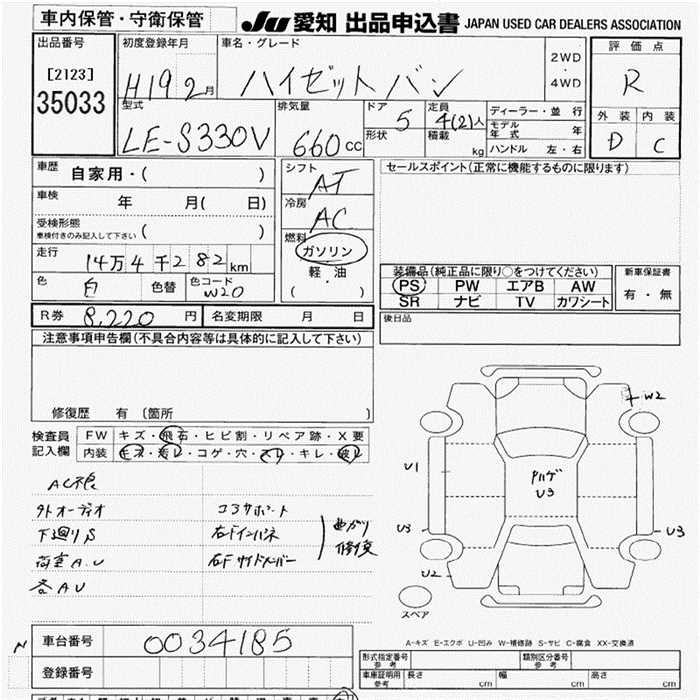 車内保管・守衛保管
JU 愛知 出品申込書 JAPAN USED CAR DEALERS ASSOCIATION
出品番号
[2123]
35033
初度登録年月
H19 2月
車名・グレード
ハイゼットバン
2WD
・
4WD
評価点
R
外装 内装
D C
型式
LE-S330V
排気量
660cc
ドア 5
形状
定員 4(2)人
積載 kg
ディーラー・並行
モデル年式 年
ハンドル 左・右
車歴 自家用・( )
車検 年 月( 日)
受検形態
車検付きのみ記入して下さい ( )
走行 14万4千282km
色 白 色替 色コード W20
シフト AT
冷房 AC
燃料 ガソリン
軽・油
( )
セールスポイント(正常に機能するものに限ります)
装備品(純正品に限り○をつけてください)
PS PW エアB AW
SR ナビ TV カワシート
新車保証書
有・無
R券 8,220円 名変期限 月 日
後日品
注意事項申告欄(不具合内容等は具体的に記入して下さい)
修復歴 有(箇所 )
検査員記入欄
FW キズ・飛石・ヒビ割・リペア跡・X要
内装 キズ・汚レ・コゲ・穴・スレ・キレ・破レ
AC不良
外オーディオ コアサポート
下廻りS 右Fインパネ
荷室A.U 右Fサイドメンバー
各AU
曲がり
修復
W2
U1
Pハゲ
U3
U3
U3
U2
スペア
A-キズ E-エクボ U-凹み W-補修跡 S-サビ C-腐食 XX-交換済
N
車台番号 0034185
登録番号
形式指定番号 参考
類別区分番号 参考
車庫証明用 参考 長さ cm 幅 cm 高さ cm